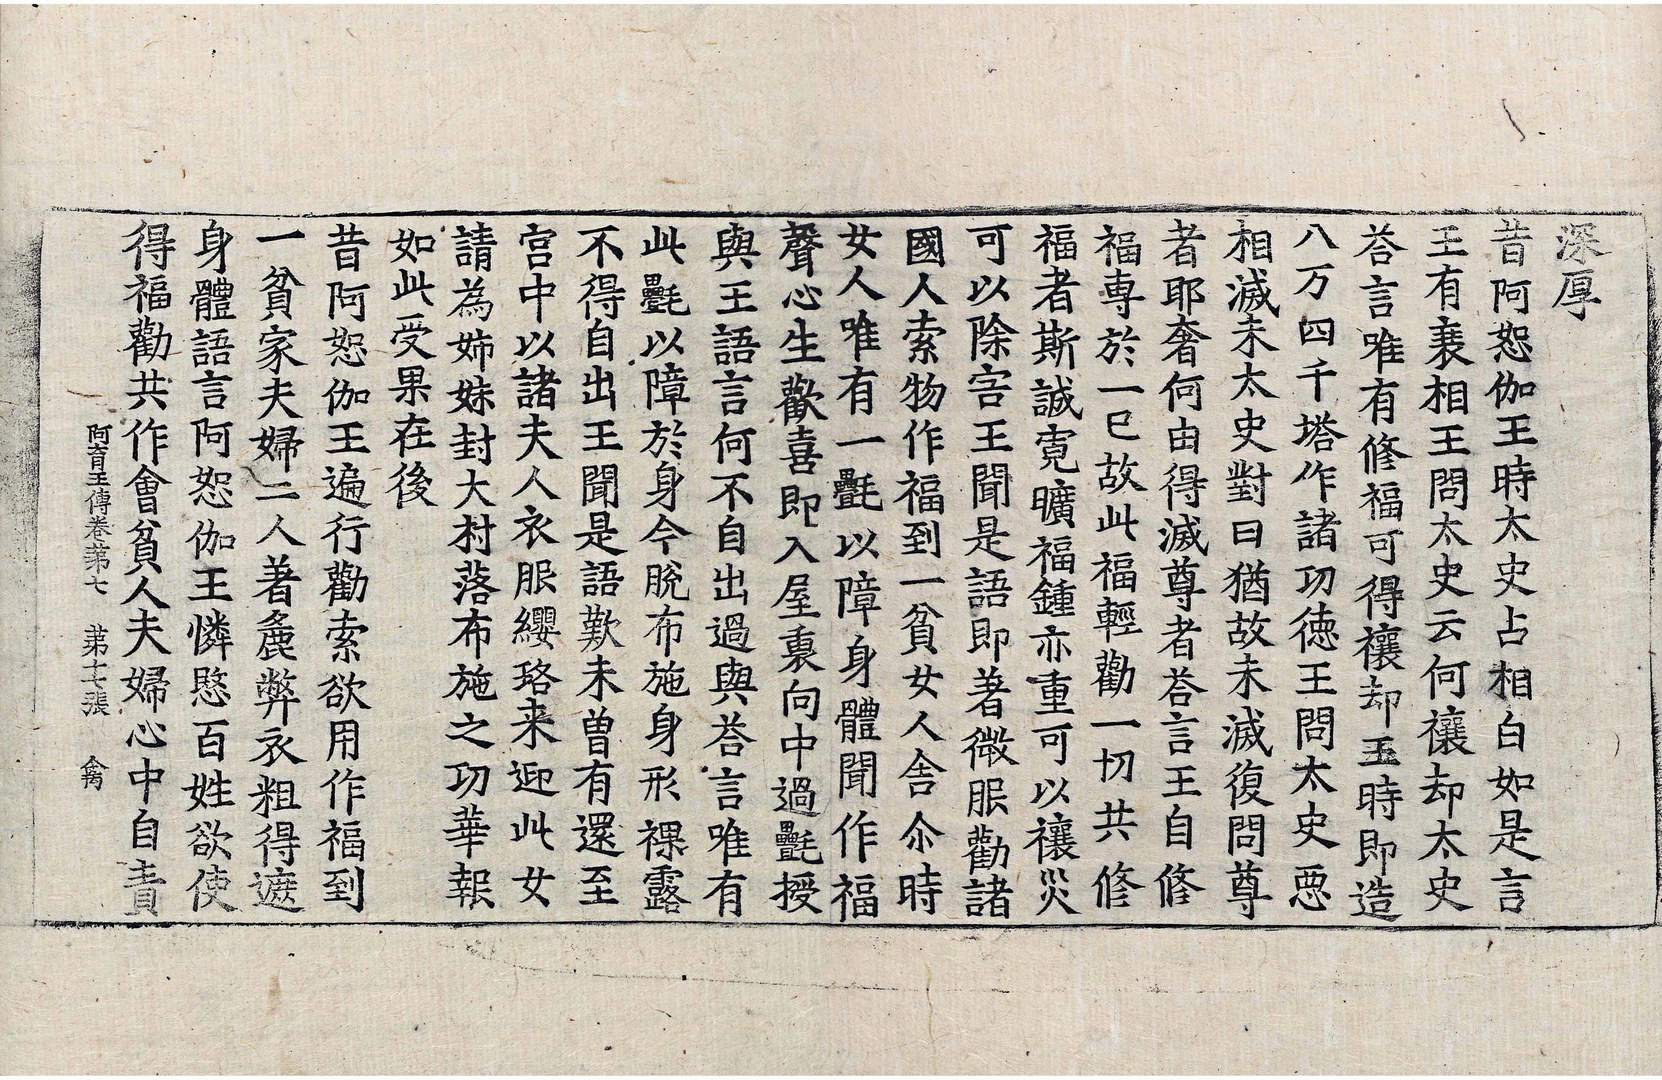 深厚
昔阿恕伽王時太史占相白如是言
王有衰相王問太史云何禳却太史
荅言唯有修福可得禳却王時即造
八万四千塔作諸功徳王問太史惡
相滅未太史對曰猶故未滅復問尊
者耶奢何由得滅尊者荅言王自修
福專於一已故此福輕勸一切共修
福者斯誠寬曠福鍾亦重可以禳災
可以除害王聞是語即著微服勸諸
國人索物作福到一貧女人舎尒時
女人唯有一㲲以障身體聞作福
聲心生歡喜即入屋裏向中過㲲授
與王語言何不自出過與荅言唯有
此㲲以障於身今脫布施身形裸露
不得自出王聞是語歎未曽有還至
宮中以諸夫人衣服纓珞来迎此女
請為姉妹封大村落布施之功華報
如此受果在後
昔阿恕伽王遍行勸索欲用作福到
一貧家夫婦二人著麁弊衣粗得遮
身體語言阿恕伽王憐愍百姓欲使
得福勸共作會貧人夫婦心中自責
阿育王傳卷苐七 苐十七張 禽